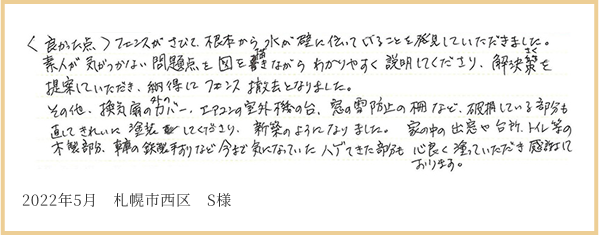 〈良かった点〉フェンスがさびて、根本から水が壁に伝いていることを発見していただきました。
素人が気がつかない問題点を図を書きながらわかりやすく説明してくださり、解決策を
提案していただき、納得してフェンス撤去となりました。
その他、換気扇の外のカバー、エアコンの室外機の台、窓の雪防止の柵など、破損している部分も
直してきれいに塗装してくださり、新築のようになりました。 家の中の出窓や台所、トイレ等の
木製部分、車庫の鉄製手すりなど今まで気になっていたハゲてきた部分も心良く塗っていただき感謝して
おります。
2022年5月 札幌市西区 S様